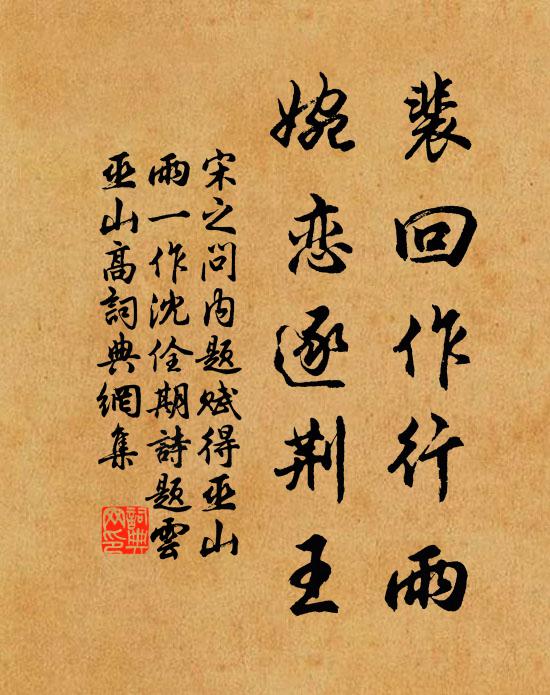 裴回作行雨
婉恋逐荆王
宋之问内题赋得巫山
雨一作沈佺期詩题雲
巫山高詞典網集